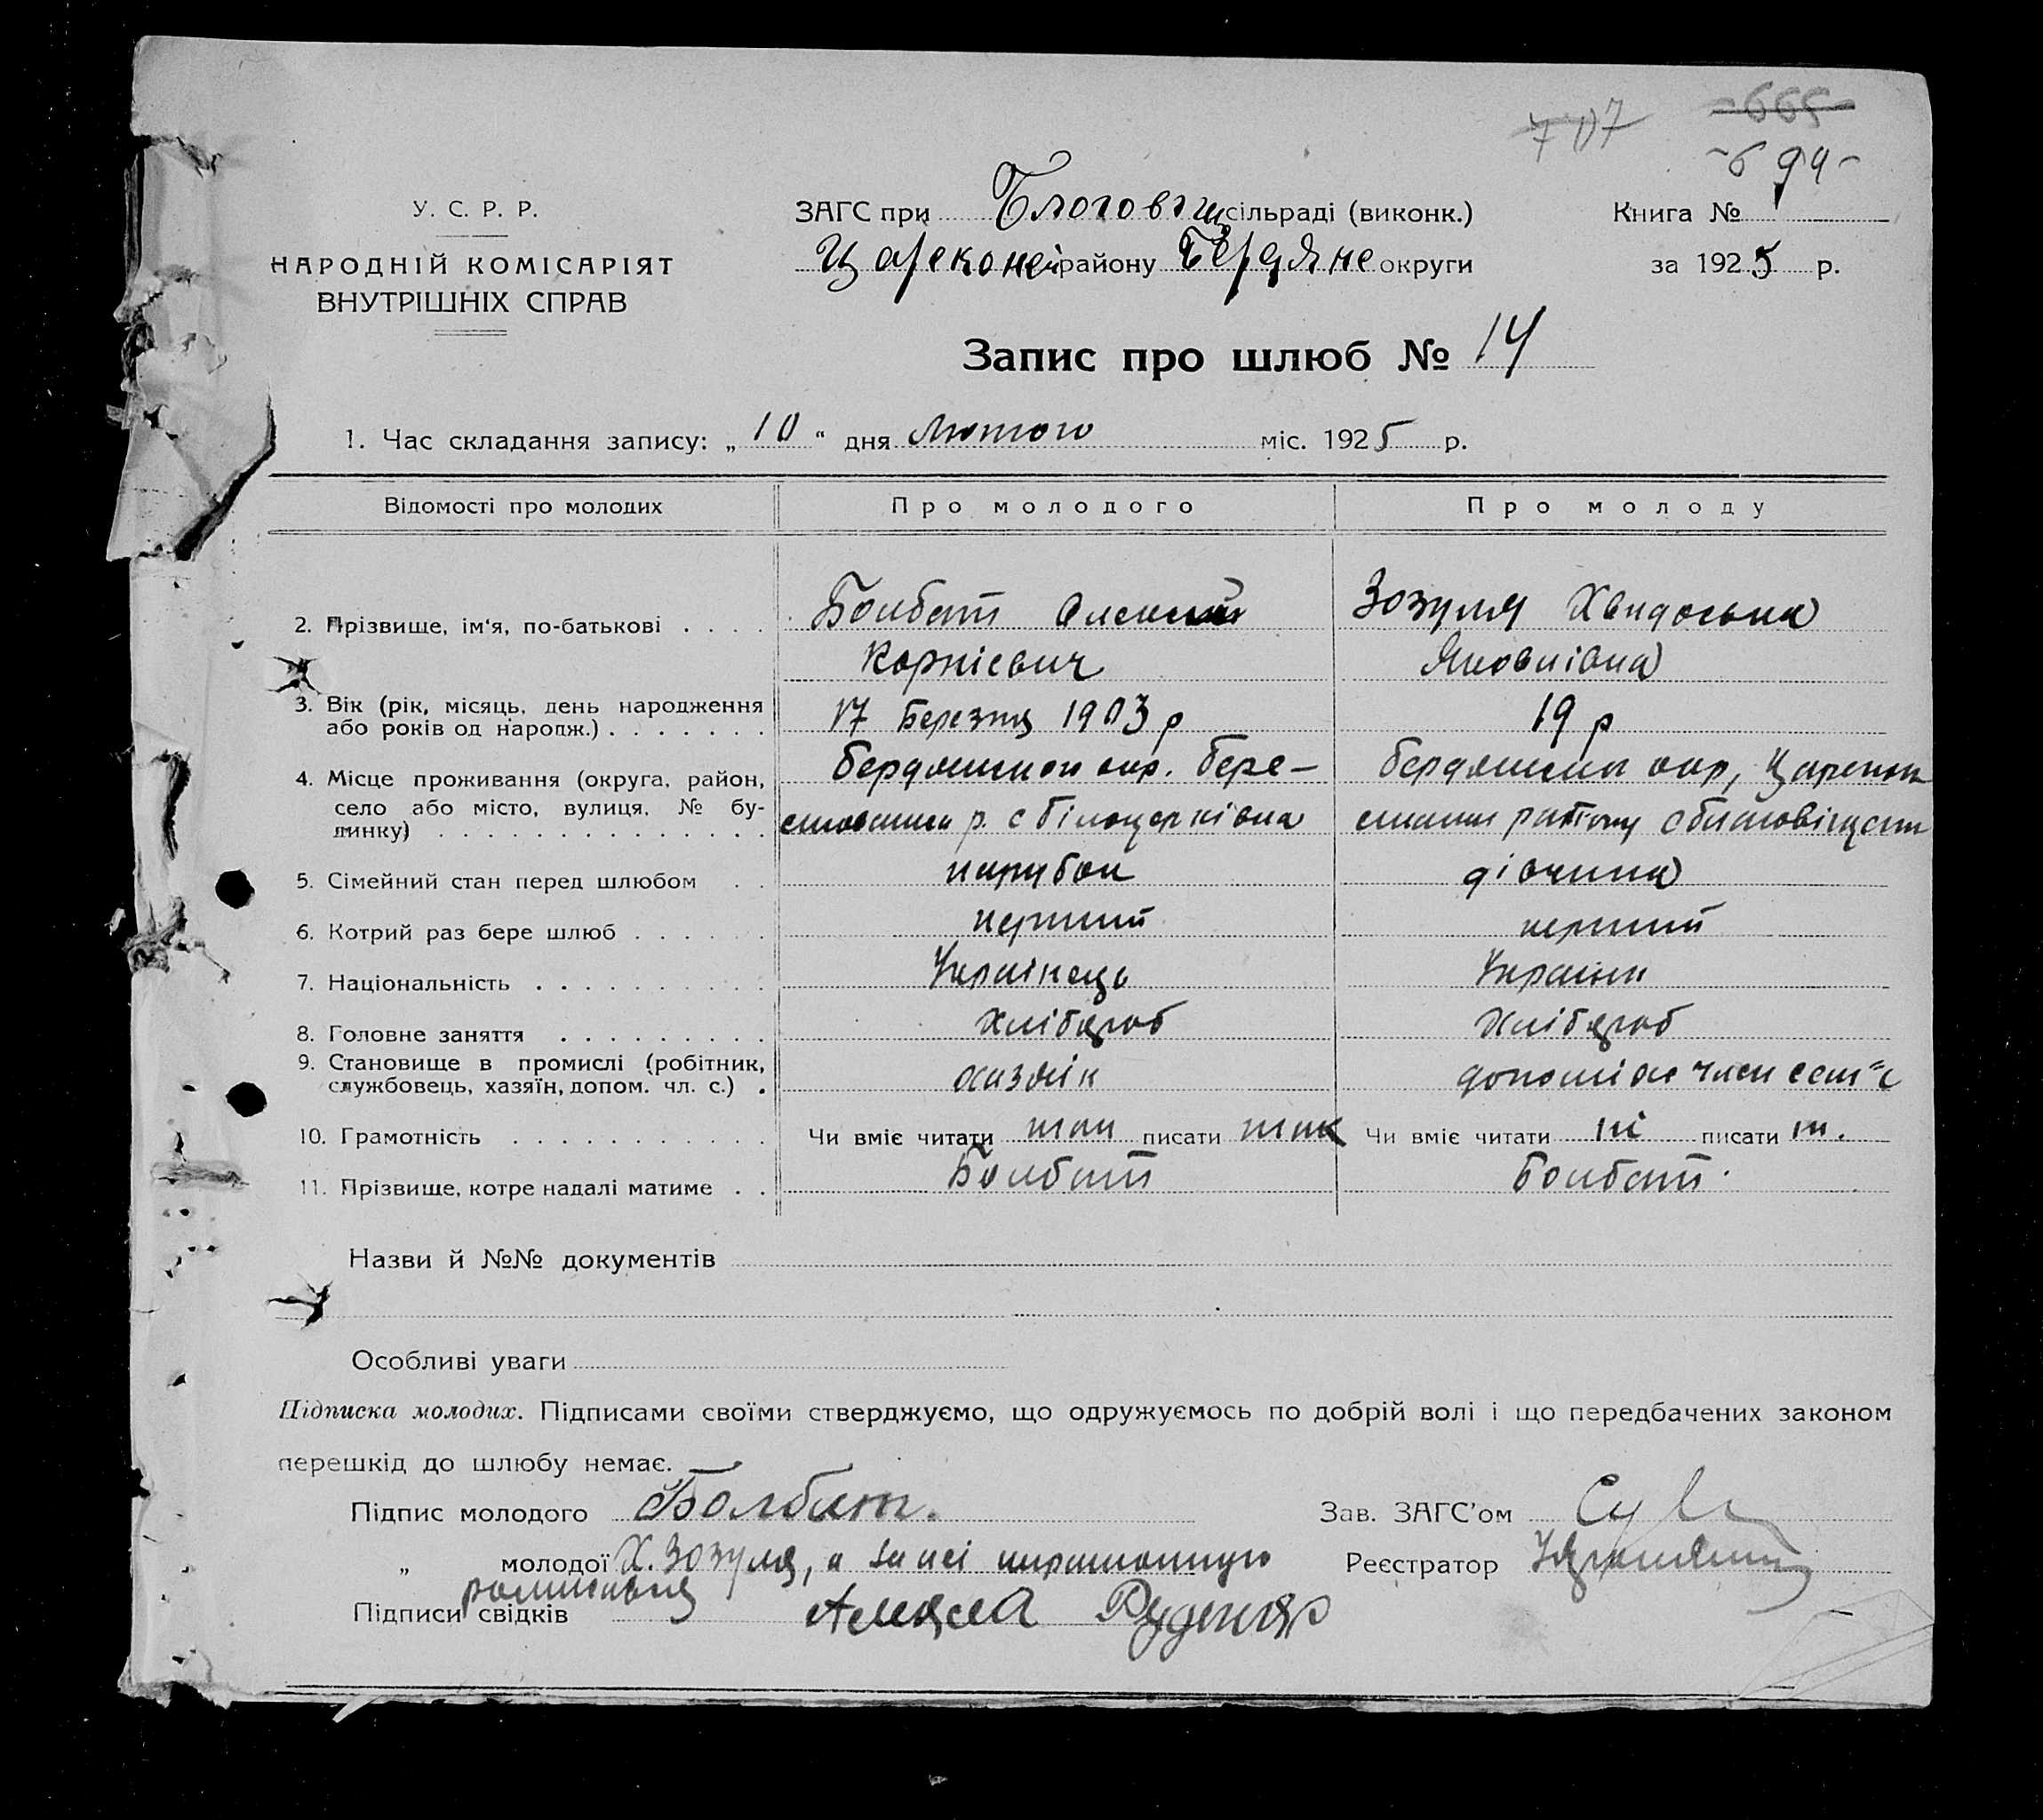 707 665
694
У. С. Р. Р.
НАРОДНІЙ КОМІСАРІЯТ
ВНУТРІШНІХ СПРАВ
ЗАГС при Благовіщ сільраді (виконк.) Книга №
району Бердянс округи за 1925 р.
Запис про шлюб № 14
1. Час складання запису: „ 10 “ дня Лютого міс. 1925 р.
Відомості про молодих Про молодого Про молоду
2. Прізвище, ім‘я, по-батькові . . . . Болбат Олексій Зозуля Хвидоська
Корнієвич Яковлівна
3. Вік (рік, місяць, день народження
або років од народж.) . . . . . . . 17 Березня 1903 р 19 р
4. Місце проживання (округа, район, окр. Бере- окр,
село або місто, вулиця, № бу- р. с Білоцерківка
динку) . . . . . . . . . . . . . .
5. Сімейний стан перед шлюбом . . парубок дівчина
6. Котрий раз бере шлюб . . . . . . перший перший
7. Національність . . . . . . . . . . Українець Українк
8. Головне заняття . . . . . . . . . Хлібороб Хлібороб
9. Становище в промислі (робітник,
службовець, хазяїн, допом. чл. с.) . хазяїн член
10. Грамотність . . . . . . . . . . . Чи вміє читати так писати так Чи вміє читати ні писати ні.
11. Прізвище, котре надалі матиме . . Болбат Болбат.
Назви й №№ документів
Особливі уваги
Підписка молодих. Підписами своїми стверджуємо, що одружуємось по добрій волі і що передбачених законом
перешкід до шлюбу немає.
Підпис молодого Болбат. Зав. ЗАГС’ом
„ молодої Х. Зозуля, а за неі Реєстратор
Підписи свідків